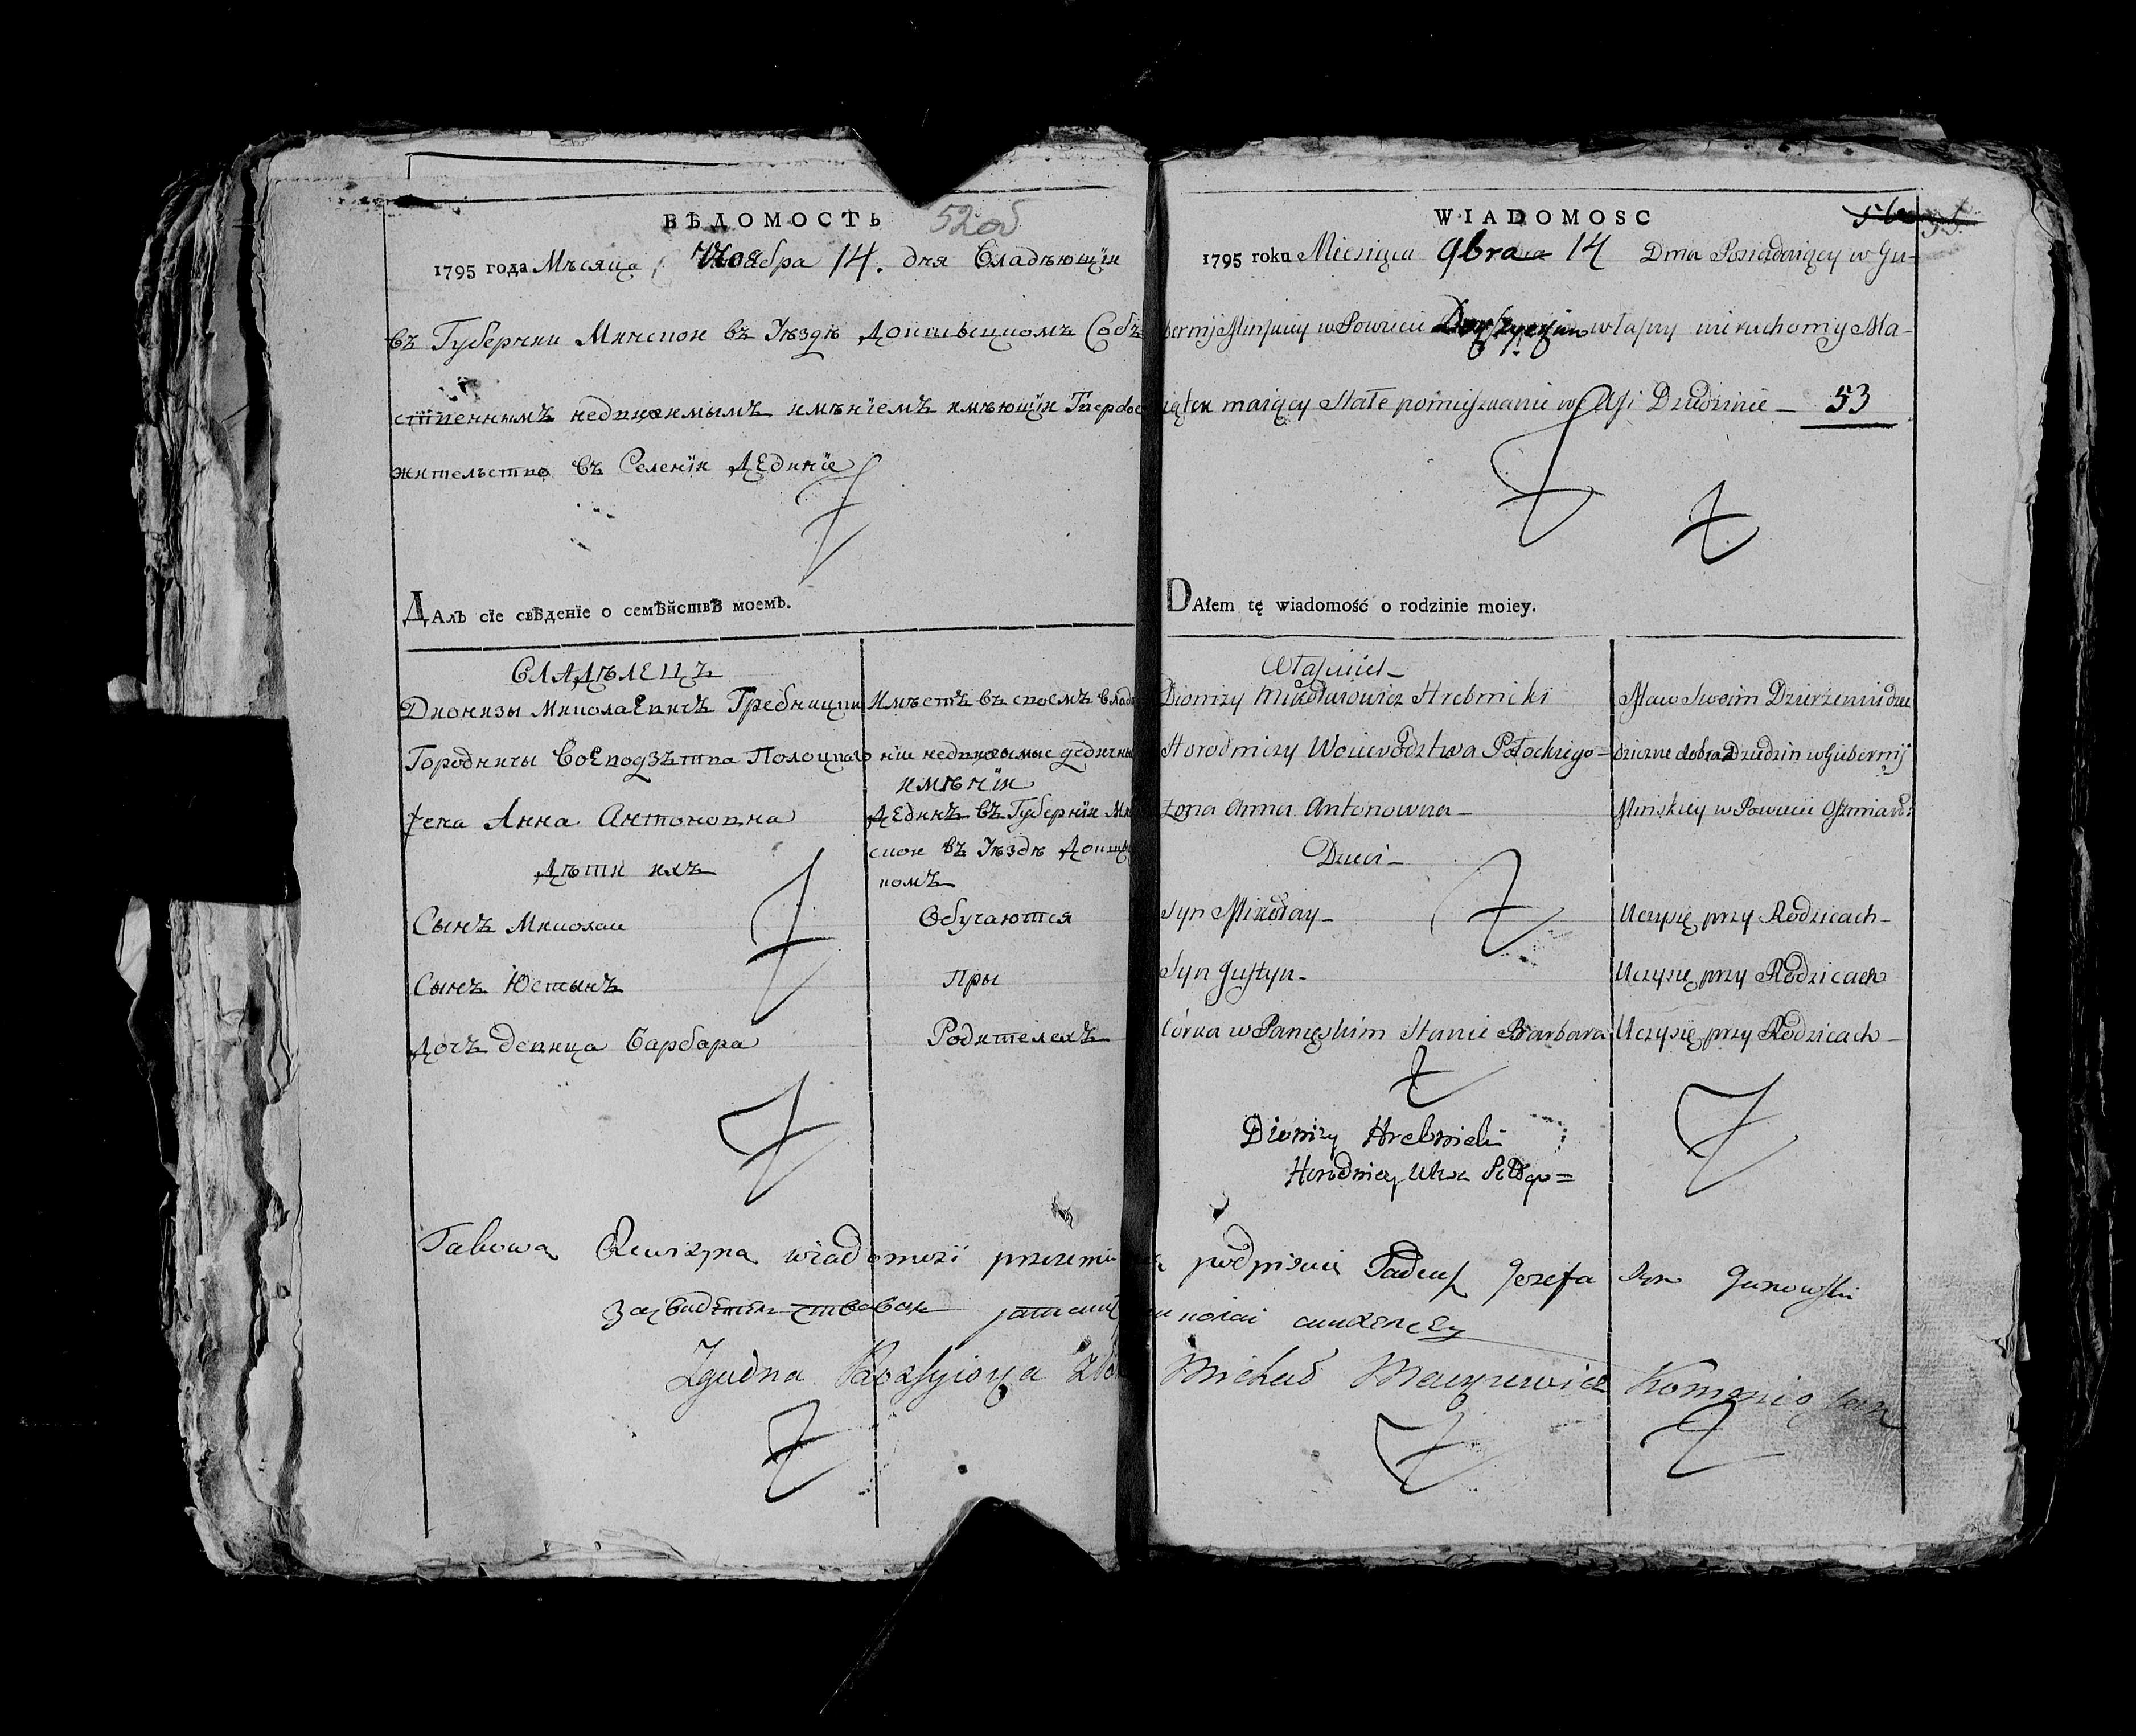 ВѢДОМОСТЬ
52 об
1795 года Мѣсяца Ноября 14. дня Владѣющїи
въ Губернии Минской въ Уѣздѣ Докшыцкомъ Соб
ственнымъ недвижимымъ имѣнїемъ имѣющїи Твердое
жительство въ Селенїи Дединїе
Далъ сїе свѣденїе о семѣйствѣ моемъ.
Владѣлецъ
Дионизы Миколаевичъ Гребницки
Городничы Воеводзтва Полоцкаго
Имѣетъ въ своемъ Владѣ
нїи недвижымые дедичны
имѣнїи
Жена Анна Антоновна
Дединъ въ Губернїи Мин
ской въ Уѣздѣ Докшыц
комъ
Дѣти ихъ
Сынъ Миколаи
Обучаются
Сынъ Юстынъ
Пры
Дочъ девица Барбара
Родителехъ
WIADOMOSC
1795 roku Miesiąca 9bra 14 Dnia Posiadaiący w Gu-
bernij Minskiey w Powiecie własny nieruchomy Ma-
iątek maiący Stałe pomieszkanie w Wsi Dziedzinie - 53
Dałem tę wiadomość o rodzinie moiey.
Własciciel -
Dionizy Mikołaiowicz Hrebnicki
Horodniczy Woiewodztwa Połockiego -
Ma w Swoim Dzierżeniu dzie
dziczne dobra Dziedzin w Gubernij
Żona Anna Antonowna -
Minskiey w Powiecie Oszmiań:
Dzieci -
Syn Mikołay -
Uczy się przy Rodzicach -
Syn Justyn -
Uczy się przy Rodzicach
Córka w Panięskim Stanie Barbara
Uczy się przy Rodzicach -
Dionizy Hrebnicki
Horodniczy
Takowa Rewizyina wiadomosć przezemnie podpisana Tadeusz Jozefa Syn
Zgodna Michał Kommissarz